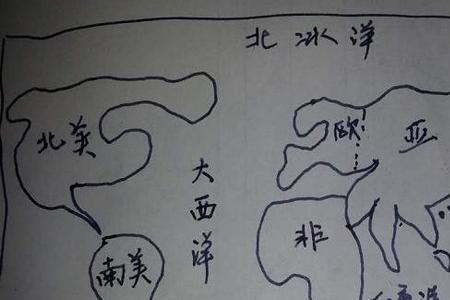 北冰洋
北美
欧
亚
大西洋
非
南美